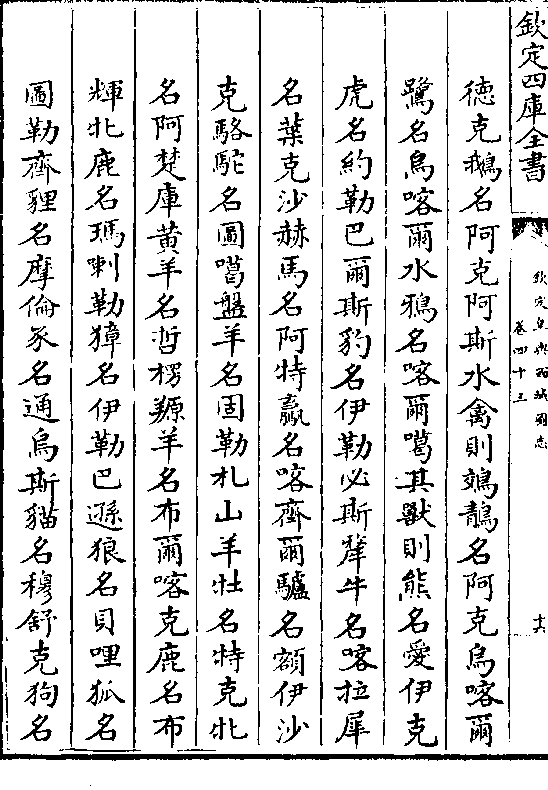 欽定四庫全書
欽定皇輿西域圖志
卷四十三
十六
德克鵝名阿克阿斯水禽則鵁鶄名阿克烏喀爾
鷺名烏喀爾水鴉名喀爾噶其獸則熊名愛伊克
虎名約勒巴爾斯豹名伊勒必斯犛牛名喀拉犀
名葉克沙赫馬名阿特驘名喀齊爾驢名額伊沙
克駱駝名圖噶盤羊名固勒札山羊牡名特克牝
名阿楚庫黄羊名哲楞羱羊名布爾喀克鹿名布
輝牝鹿名瑪喇勒獐名伊勒巴遜狼名貝哩狐名
圖勒齊貍名摩倫豕名通烏斯貓名穆舒克狗名